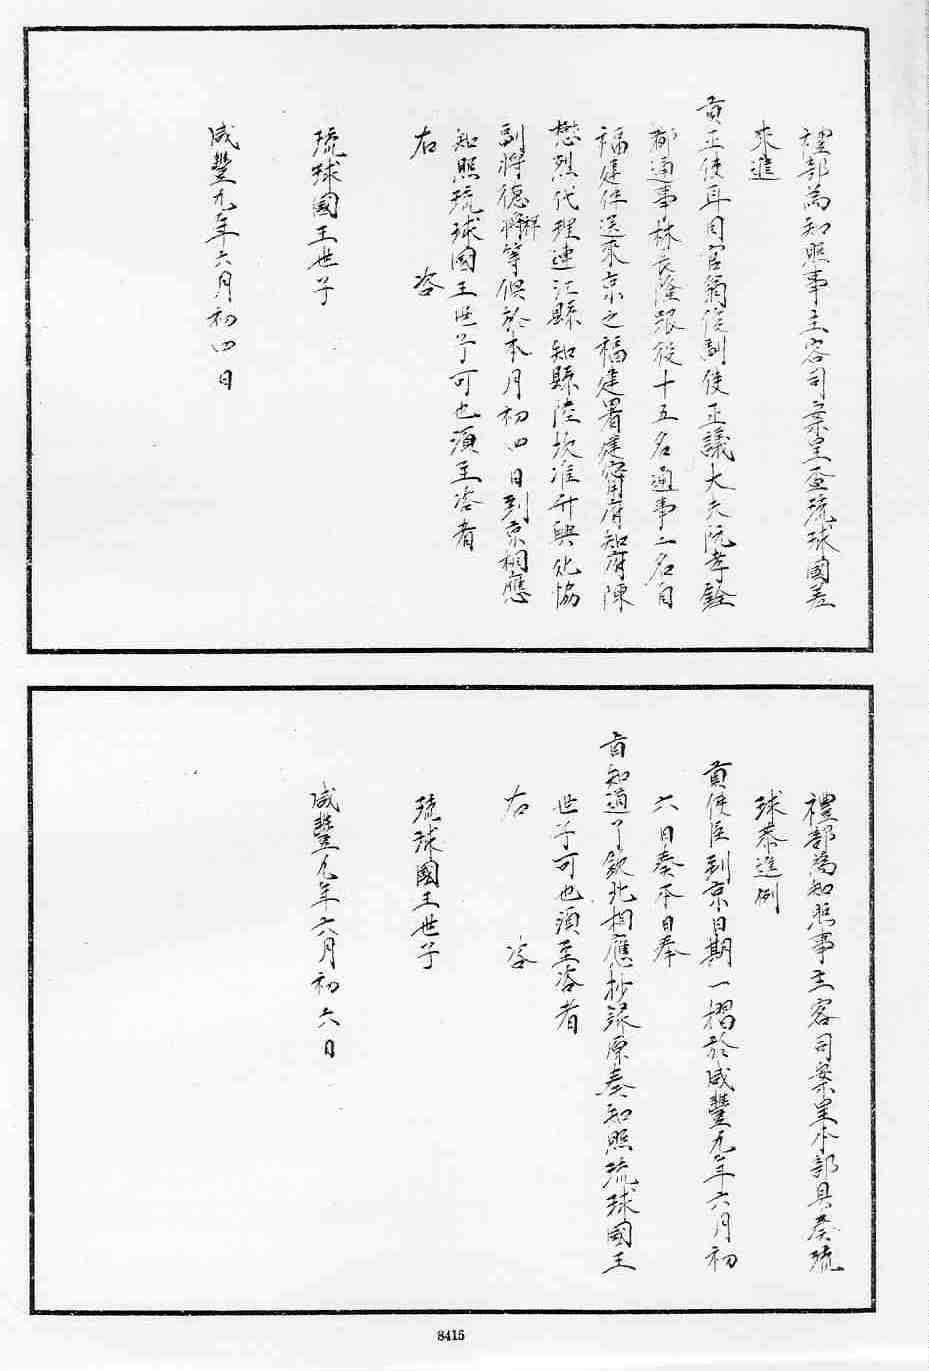 禮部為知照事主客司案呈查琉球國差
來進
貢正使耳目官翁俊副使正議大夫阮孝銓
都通事林長隆跟役十五名通事二名自
福建伴送來京之福建署建寧府知府陳
懋烈代理連江縣知縣陸坎准升興化協
副將德將等俱於本月初四日到京相應
知照琉球國王世子可也須至咨者
右咨
琉球國王世子
咸豐九年六月初四日
禮部為知照事主客司案呈本部具奏琉
球恭進例
貢使臣到京日期一摺於咸豐九年六月初
六日奏本日奉
旨知道了欽此相應抄錄原奏知照琉球國王
世子可也須至咨者
右咨
琉球國王世子
咸豐九年六月初六日
8415